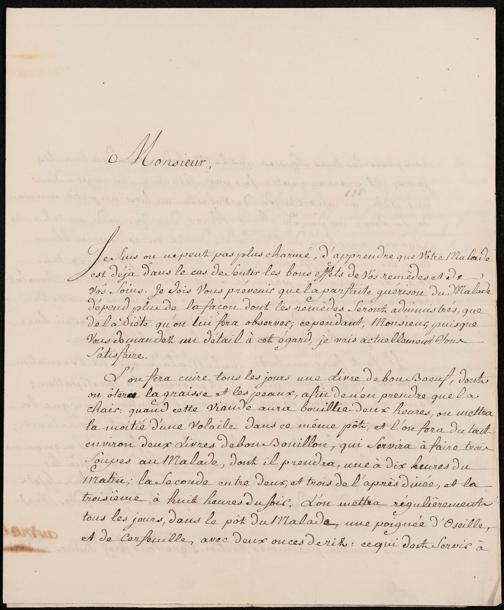 Monsieur,
Je suis on ne peut pas plus charmé, d'apprendre que Vôtre Malade
est déja dans le cas de sentir les bons effets de Vos remédes et de
vos Soins. Je dois Vous prévenir que la parfaite guérison du Malade
dépend plus de la façon dont les remédes Seront administrés, que
de la diéte qu'on lui fera observer; cependant, Monsieur, puisque
Vous demandez un détail à cet égard, je vais actuellement Vous
Satisfaire.
L'on fera cuire tous les jours une livre de bon Boeuf, dont
on ôtera la graisse et les peaux, afin de n'en prendre que la
chair. quand cette Viande aura bouillie deux heures, on mettra
la moitié d'une Volaile dans ce même pôt, et l'on fera du tout
environ deux livres de bon Bouillon, qui Servira à faire trois
Soupes au Malade, dont il prendra, une à dix heures du
Matin; la Seconde entre deux, et trois de l'après dinée, et la
troisième à huit heures du soir. L'on mettra régulièrement
tous les jours, dans le pôt du Malade, une poignée d'Oseille,
et de Cerfeuille, avec deux onces de rih: ce qui doit Servir à